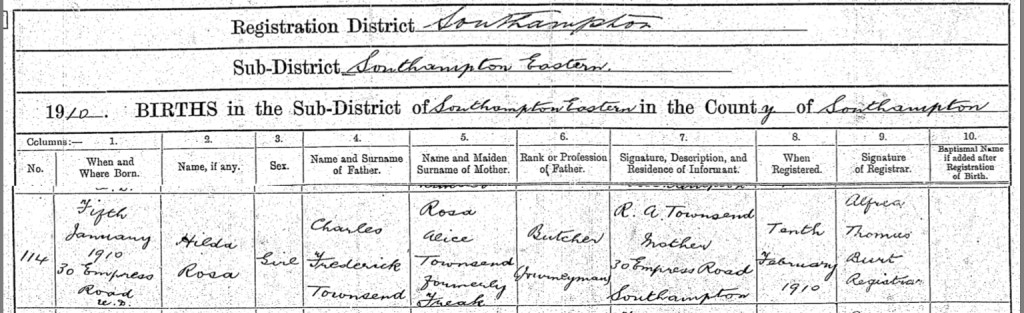 Registration District Southampton
Sub-District Southampton Eastern.
1910. BIRTHS in the Sub-District of Southampton Eastern in the County of Southampton
Columns:— 1. 2. 3. 4. 5. 6. 7. 8. 9. 10.
No. When and Where Born. Name, if any. Sex. Name and Surname of Father. Name and Maiden Surname of Mother. Rank or Profession of Father. Signature, Description, and Residence of Informant. When Registered. Signature of Registrar. Baptismal Name if added after Registration of Birth.
114
Fifth
January
1910
30 Empress
Road
U.D.
Hilda
Rosa
Girl
Charles
Frederick
Townsend
Rosa
Alice
Townsend
formerly
Freak
Butcher
(Journeyman)
R. A. Townsend
Mother
30 Empress Road
Southampton
Tenth
February
1910
Alfred
Thomas
Burt
Registrar